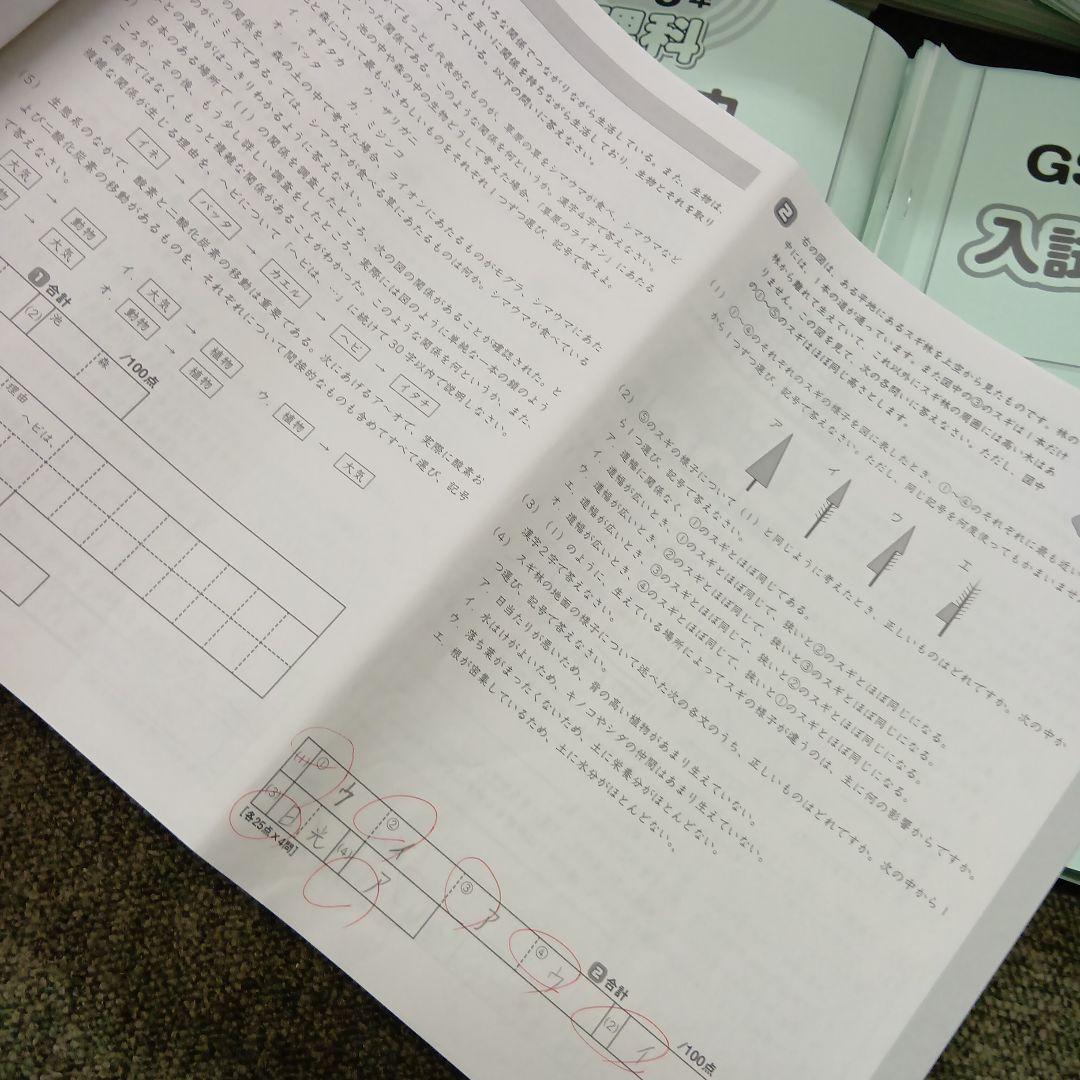 理科
GS
入試
いろな関係でつながりながら生活している。また、生物は、
とも互いに関係を持ちながら生活しており、生物とそれを取り
つくっている。以下の問いに答えなさい。
てもっとも代表的なものが、草原の草をシマウマが食べ、シマウマなど
った関係である。このような関係を何というか。漢字4字で答えなさい。
て、池の中や森の中の生物どうしで考えた場合、「草原のライオン」にあたる
と森について最もふさわしいものをそれぞれ1つずつ選び、記号で答えよ。
イ．オオタカ
ウ．ザリガニ
バッタ
カ．ミジンコ
を、森の土の中で考えた場合、ライオンにあたるものがモグラ、シマウマにあた
ミミズである。では、シマウマが食べる草にあたるものは何か。シマウマが食べている
との違いがはっきりわかるように答えなさい。
日本のある場所で(1)の関係を調査したところ、次の図の関係があることが確認された。と
ころが、その後、もう少し詳しい調査をしたところ、実際には図のように単純な一本の鎖のよう
な関係ではなく、もっと複雑な関係があることがわかった。このような関係を何というか、また、
複雑な関係が生じる理由を、ヘビについて「ヘビは、…」に続けて30字以内で説明しなさい。
イネ → バッタ → カエル → ヘビ → イタチ
(5) 生態系のなかで、酸素と二酸化炭素の移動は重要である。次にあげるア〜オで、実際に酸素お
よび二酸化炭素の移動があるものを、それぞれについて間接的なものも含めてすべて選び、記号
で答えなさい。
大気 → 動物
イ．大気 → 植物
ウ．植物 → 大気
物 → 大気
オ．動物 → 植物
1 合計
/100点
(2) 池
森
理由
ヘビは、
2 右の図は、ある平地にあるスギ林を上空から見たものです。林の
中には、1本の道が通っています。また図中の③のスギは1本だけ
林から離れて生えていて、これ以外にスギ林の周囲には高い木はあ
りません。この図を見て、次の各問いに答えなさい。ただし、図中
の①〜⑤のスギはほぼ同じ高さとします。
(1) ①〜④のそれぞれのスギの様子を図に表したとき、①〜④のそれぞれに最も近い
から1つずつ選び、記号で答えなさい。ただし、同じ記号を何度使ってもかまいませ
ア
イ
ウ
エ
(2) ⑤のスギの様子について(1)と同じように考えたとき、正しいものはどれですか。次の中か
ら1つ選び、記号で答えなさい。
ア．道幅に関係なく、①のスギとほぼ同じである。
イ．道幅が広いとき、①のスギとほぼ同じで、狭いと②のスギとほぼ同じになる。
ウ．道幅が広いとき、②のスギとほぼ同じで、狭いと③のスギとほぼ同じになる。
エ．道幅が広いとき、③のスギとほぼ同じで、狭いと②のスギとほぼ同じになる。
オ．道幅が広いとき、④のスギとほぼ同じで、狭いと①のスギとほぼ同じになる。
(3) (1)のように、生えている場所によってスギの様子が違うのは、主に何の影響からですか。
漢字2字で答えなさい。
(4) スギ林の地面の様子について述べた次の各文のうち、正しいものはどれですか。次の中から1
つ選び、記号で答えなさい。
ア．日当たりが悪いため、背の高い植物があまり生えていない。
イ．水はけがよいため、キノコやシダの仲間はあまり生えていない。
ウ．落ち葉がまったくないため、土に栄養分がほとんどない。
エ．根が密集しているため、土に水分がほとんどない。
(1) ① ウ ② イ ③ ア ④ ウ (2) イ
(3) 日光 (4) ア
[各25点×4問]
2 合計
/100点